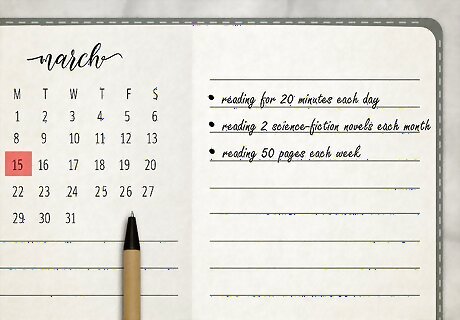 march
M T W T F S
1 2 3 4 5 6
8 9 10 11 12 13
15 16 17 18 19 20
22 23 24 25 26 27
29 30 31
• reading for 20 minutes each day
• reading 2 science-fiction novels each month
• reading 50 pages each week